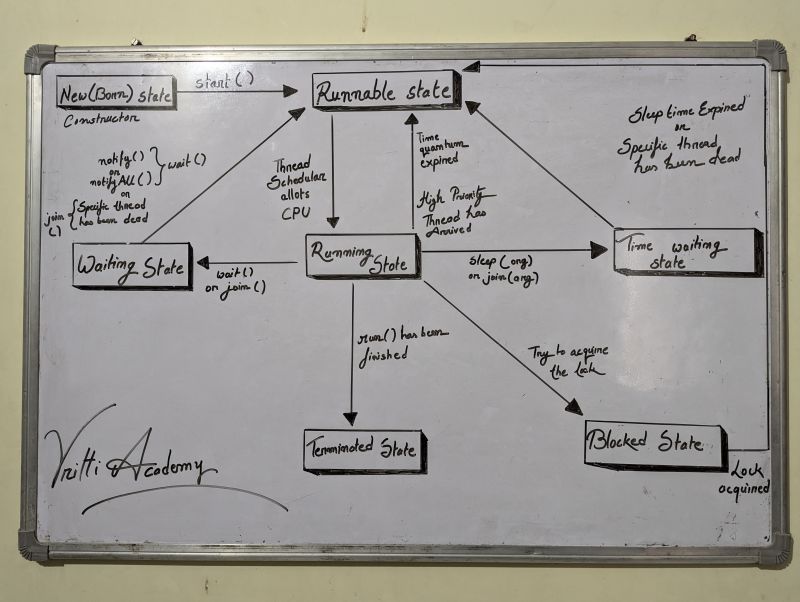 New(Born) State
Constructor
start()
Runnable state
Sleep time Expired
or
Specific thread
has been dead
notify()
or
notifyAll()
or
wait()
join
()
Specific thread
has been dead
Thread
Schedular
allots
CPU
Time
quantum
expired
High Priority
Thread has
Arrived
Waiting State
wait()
or join()
Running
State
sleep(arg)
or join(arg)
Time waiting
state
run() has been
finished
Try to acquire
the Lock
Terminated State
Blocked State
Lock
acquired
Vritti Academy